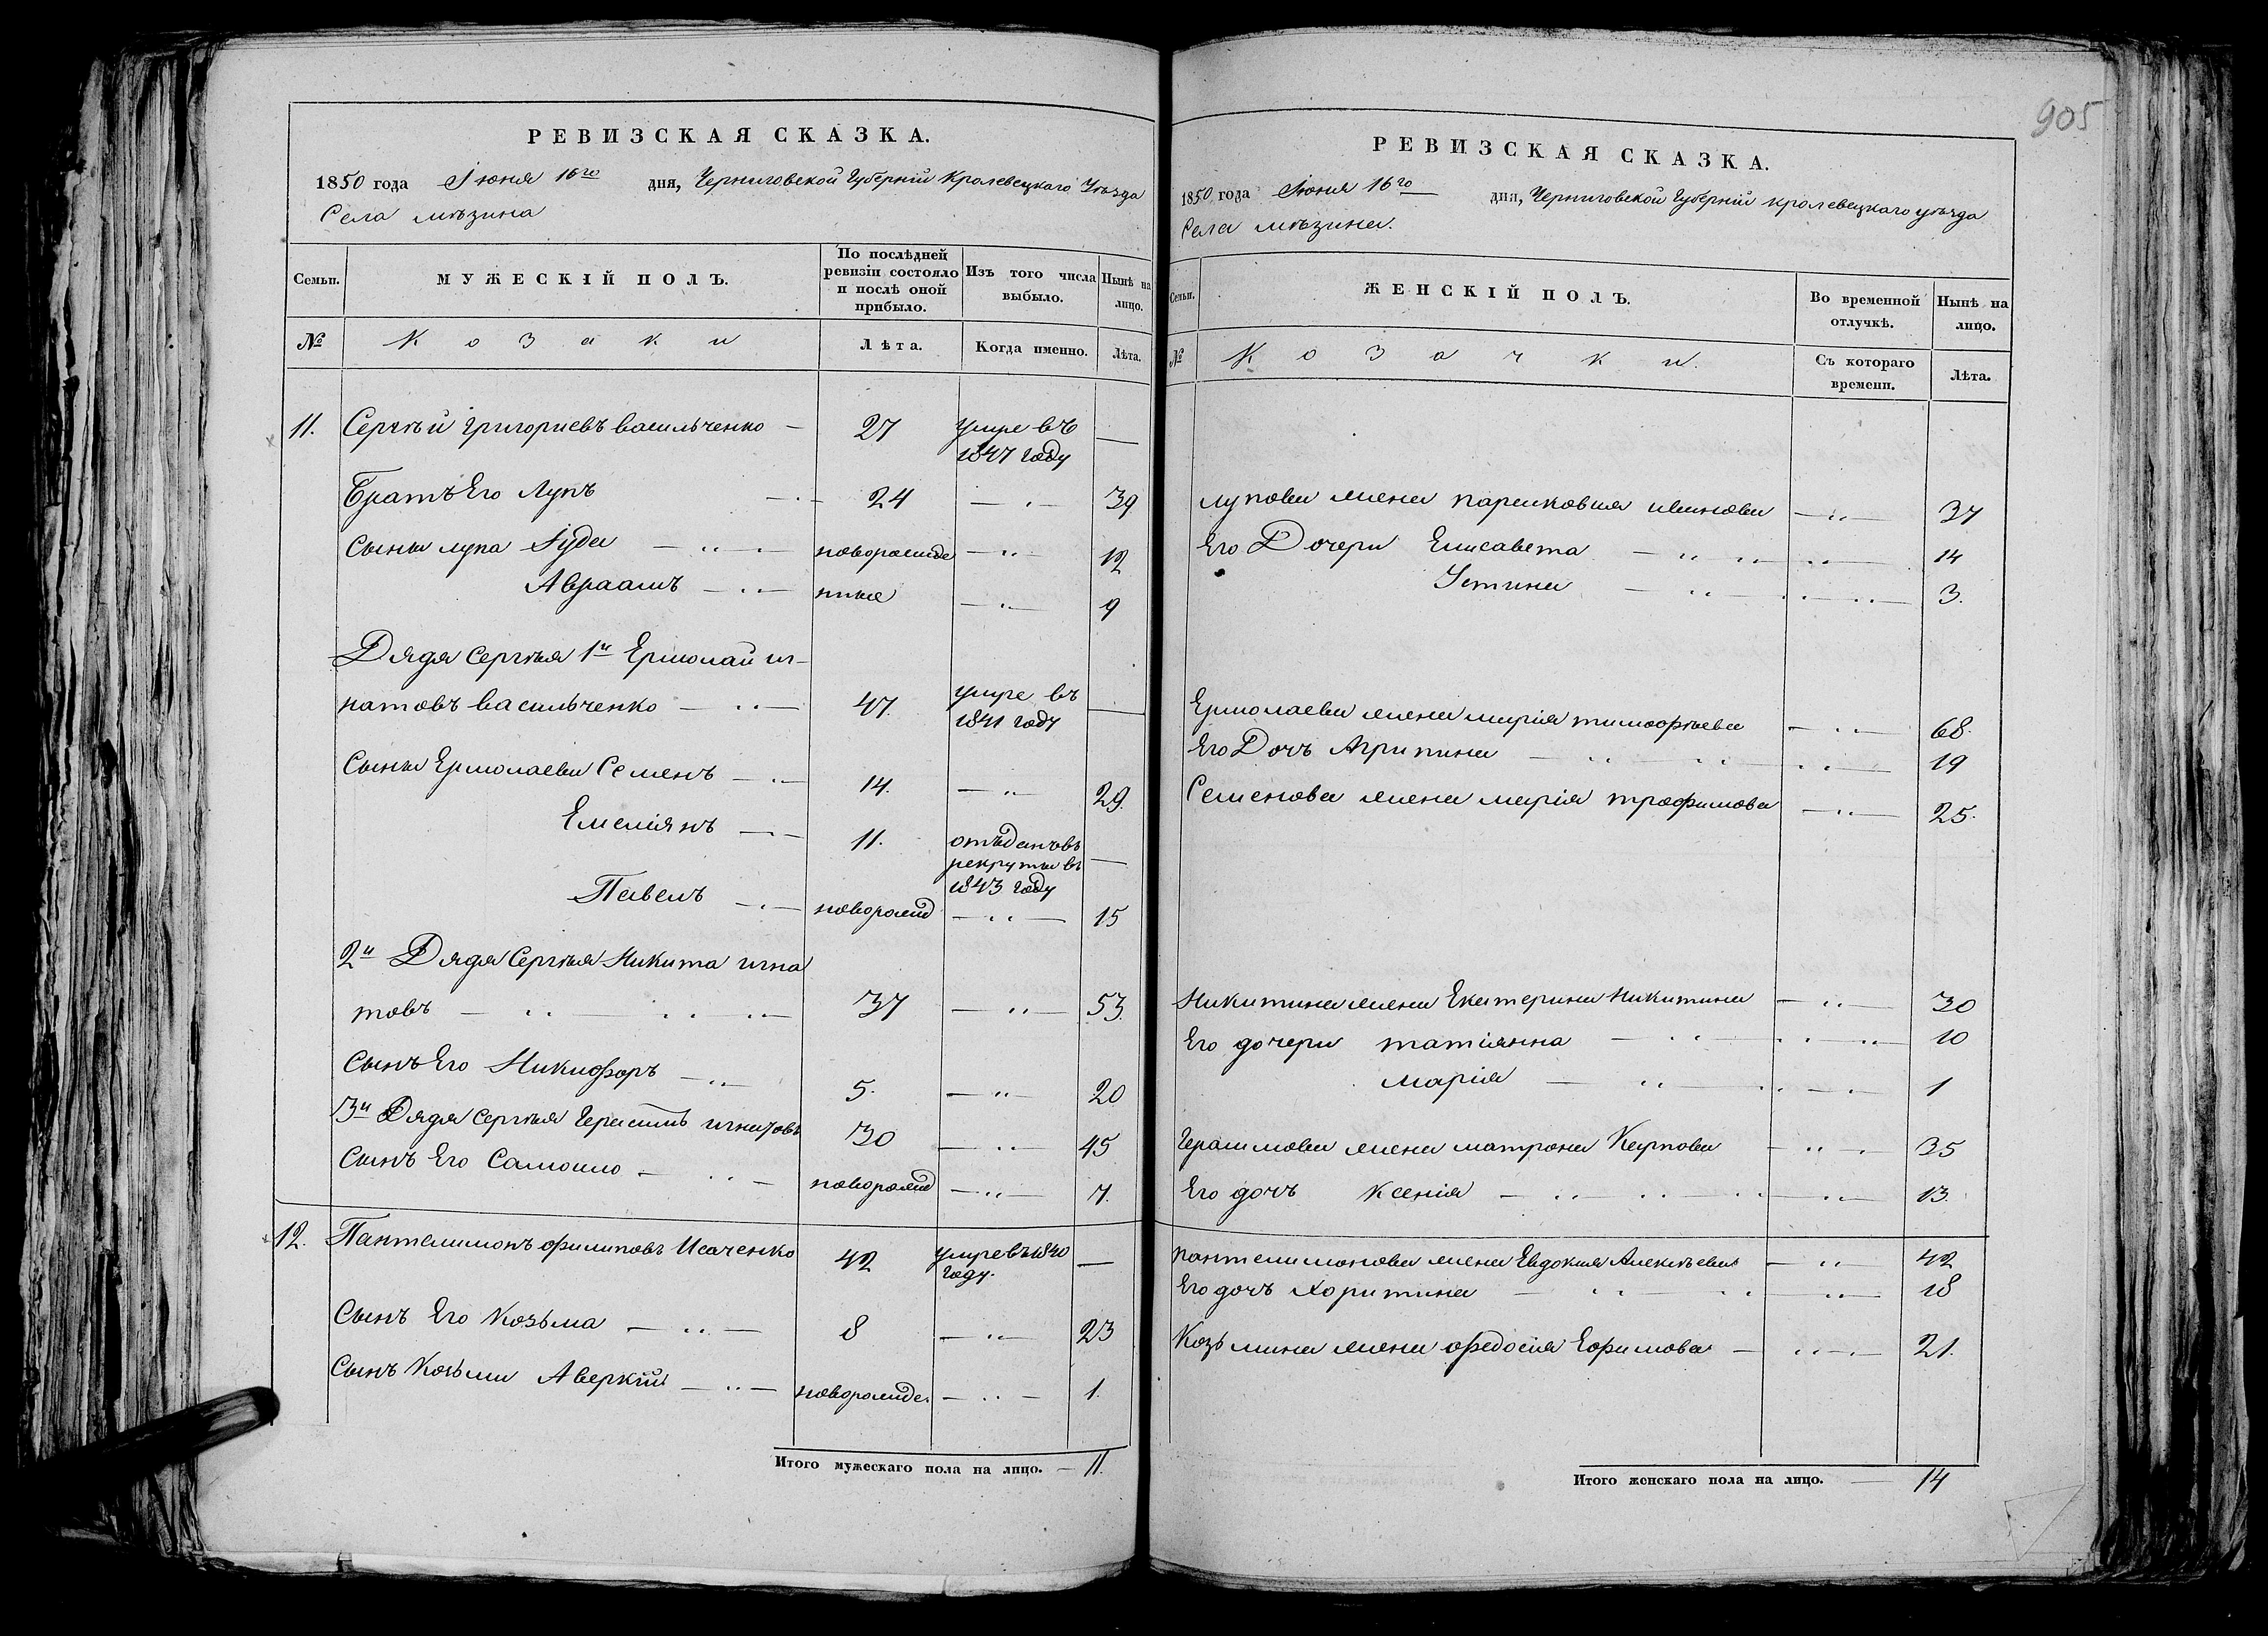 РЕВИЗСКАЯ СКАЗКА.
1850 года Іюня 16го дня, Черниговской Губерніи Кролевецкаго Уѣзда
Села мѣзина
Семьи. МУЖЕСКІЙ ПОЛЪ. По послѣдней ревизіи состояло и послѣ оной прибыло. Изъ того числа выбыло. Нынѣ на лицо.
№ Козаки Лѣта. Когда именно. Лѣта.
11. Сергѣй Григориевъ васильченко — 27 умре въ —
1847 году
Братъ Его Лупъ 24 39
Сыны лупа Іуда новорожде 12
Авраамъ нные 9
Дядя сергѣя 1й Ермолай иг-
натовъ васильченко 47. умре въ —
1841 году
Сыны Ермолаевы Семенъ 14. 29.
Емеліянъ 11. отъданъ въ —
рекруты въ
1843 году
Павелъ новорожд 15
2й Дядя Сергѣя Никита игна
товъ 37 53.
Сынъ Его Никифоръ 5. 20
3й Дядя сергѣя Герасимъ игнатовъ 30 45
Сынъ Его Самоило новорожд 7.
12. Пантелимонъ филиповъ Исаченко 42 умре въ 1840 —
году.
Сынъ Его Козьма 8 23
Сынъ Козьмы Аверкій новорожде. 1.
Итого мужескаго пола на лицо. — 11.
905
РЕВИЗСКАЯ СКАЗКА.
1850 года Іюня 16го дня, Черниговской Губерніи кролевецкаго уѣзда
Села мѣзина.
Семьи. ЖЕНСКІЙ ПОЛЪ. Во временной отлучкѣ. Нынѣ на лицо.
№ Козачки. Съ котораго времени. Лѣта.
лупова жена парасковия иванова 37
Его Дочери Елисавета 14
Устина 3.
Ермолаева жена марія тимофѣева 68.
Его Дочъ Агрипина 19
Семенова жена марія трофимова 25.
Никитина жена Екатерина Никитина 30
Его дочери татіянна 10
марія 1
Герасимова жена матрона Карпова 35
Его дочъ ксенія 13.
пантелимонова жена Евдокия Алексѣева 42
Его дочъ Харитина 18
Козьмина жена федосія Ефимова 21.
Итого женскаго пола на лицо. — 14